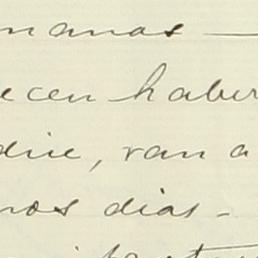 manas —
ecen haber
die, van a
nos dias -